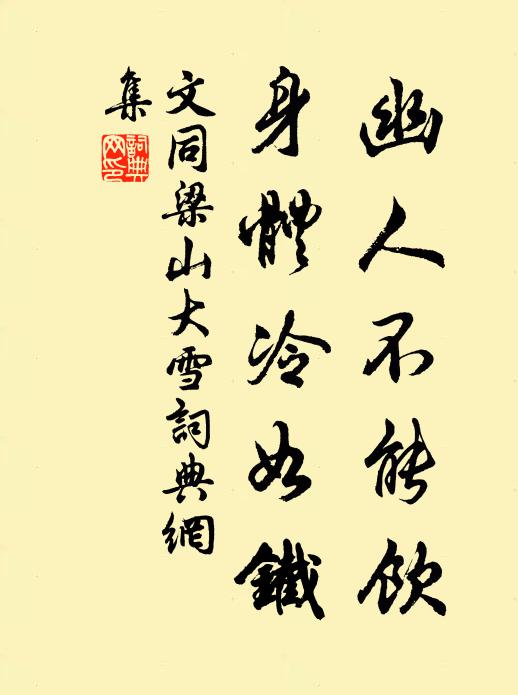 幽人不能飲
身體冷如鐵
文同梁山大雪詞典網
集
詞典
网印